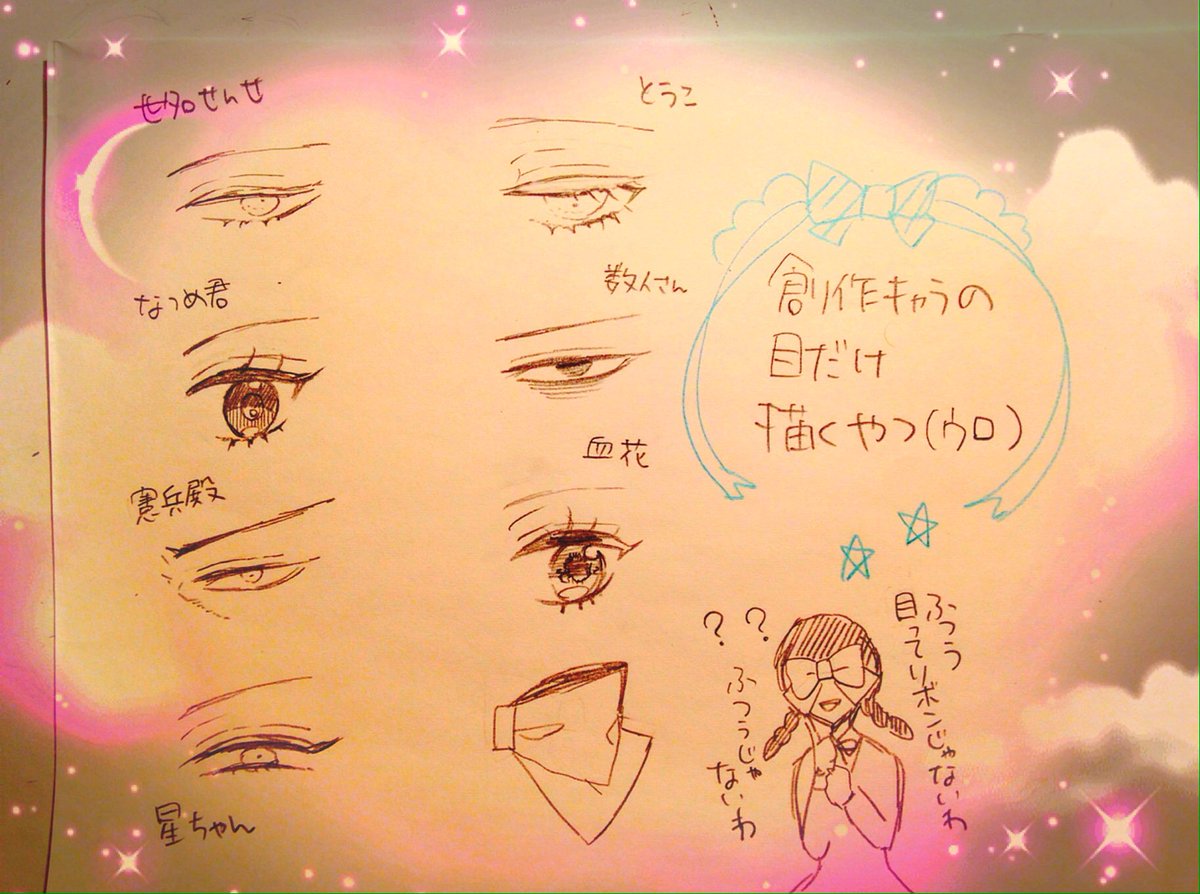 せんせ
とうこ
なつめ君
数人さん
憲兵殿
血花
星ちゃん
創作キャラの
目だけ
描くやつ(ウロ)
ふつう
目ってリボンじゃないわ
? ?
ふつうじゃ
ないわ